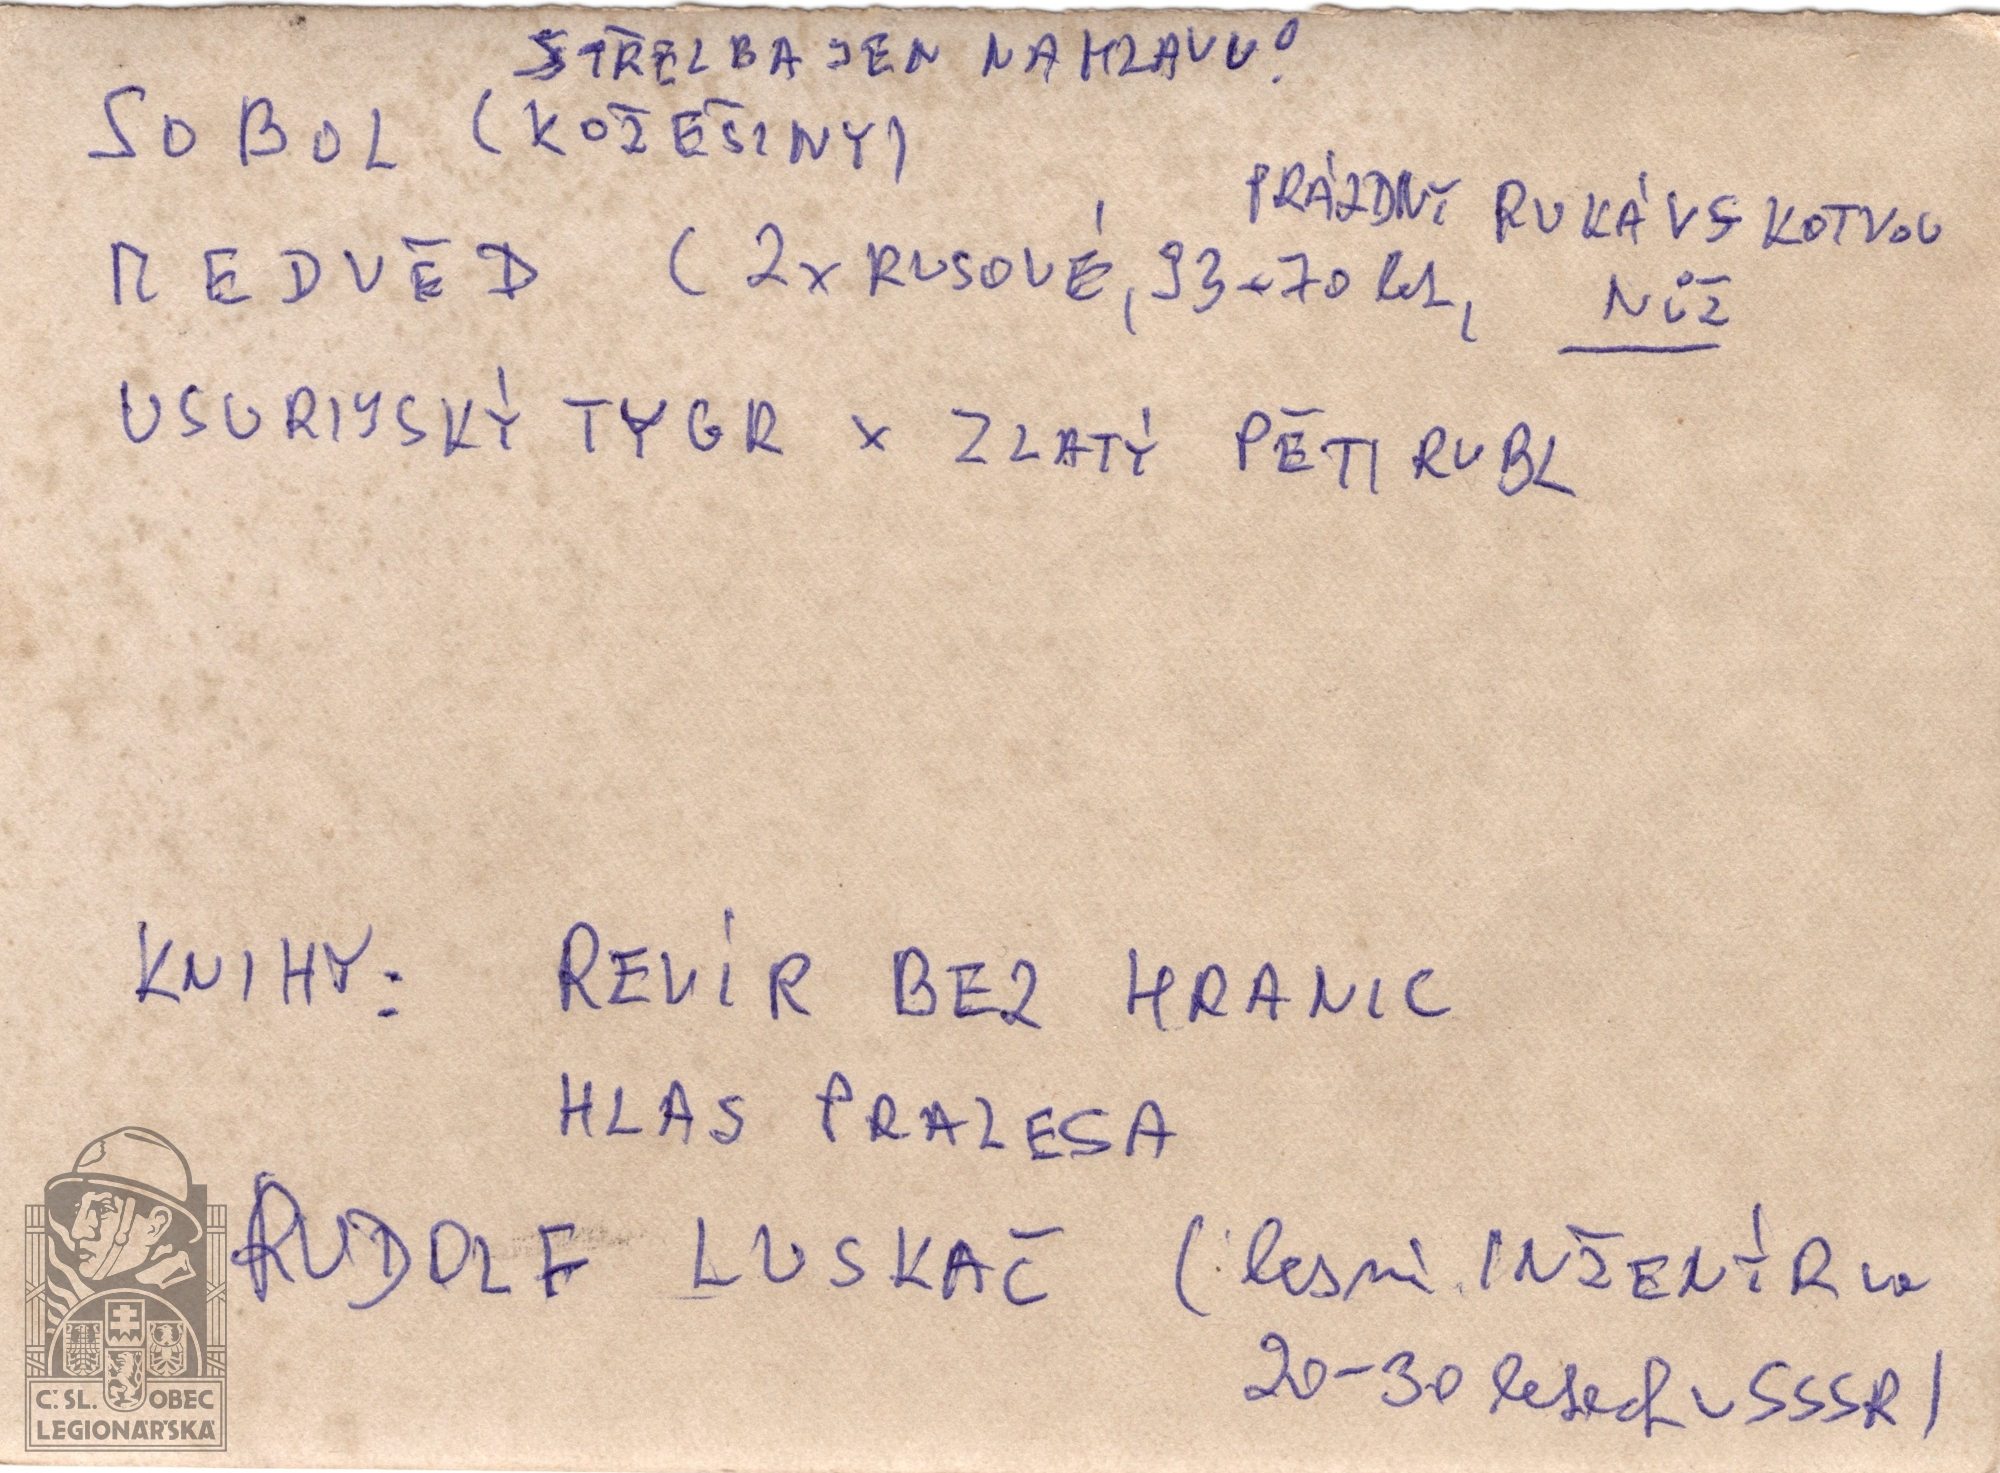 STŘELBA JEN NA HLAVU!
SOBOL (KOŽEŠINY)
PRÁZDNÝ RUKÁV S KOTVOU
MEDVĚD (2x RUSOVÉ, 93-70 let, NŮŽ
USURIJSKÝ TYGR x ZLATÝ PĚTIRUBL
KNIHY: REVÍR BEZ HRANIC
HLAS PRALESA
RUDOLF LUSKAČ (lesní INŽENÝR ve
20-30 letech v SSSR)
Č.SL. OBEC
LEGIONÁŘSKÁ